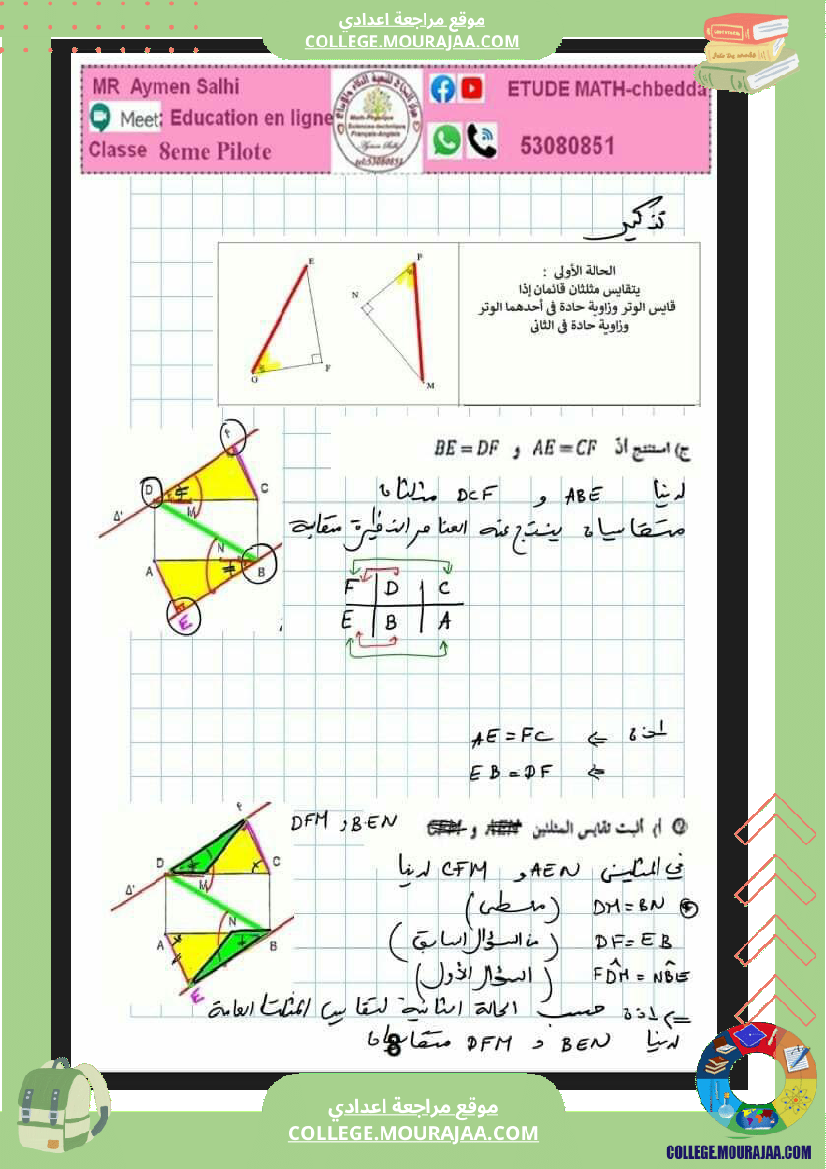 موقع مراجعة اعدادي
COLLEGE.MOURAJAA.COM
MR Aymen Salhi
Meet: Education en ligne
Classe 8eme Pilote
Math-Physique
Sciences-technique
Français-Anglais
Aymen Salhi
tel:53080851
ETUDE MATH-chbedda
53080851
تذكير
الحالة الأولى :
يتقايس مثلثان قائمان إذا
قايس الوتر وزاوية حادة في أحدهما الوتر
وزاوية حادة في الثاني
E
P
N
O
F
M
ج) استنتج أنّ AE = CF و BE = DF
لدينا ABE و DCF مثلثان
متقايسان ينتج عنه العناصر النظيرة متقايسة
F
D
C
Δ'
M
N
A
B
E
F D C
E B A
إذن => AE = FC
=> EB = DF
② أ) أثبت تقايس المثلثين AEN و CFM BEN و DFM
F
D
C
Δ'
M
N
A
B
E
في المثلثين AEN و CFM لدينا
DM = BN (معطى)
DF = EB (من السؤال السابق)
FDM = NBE (السؤال الأول)
=> إذن حسب الحالة الثانية لتقايس المثلثات العامة
لدينا BEN و DFM متقايسان
8
موقع مراجعة اعدادي
COLLEGE.MOURAJAA.COM
COLLEGE.MOURAJAA.COM